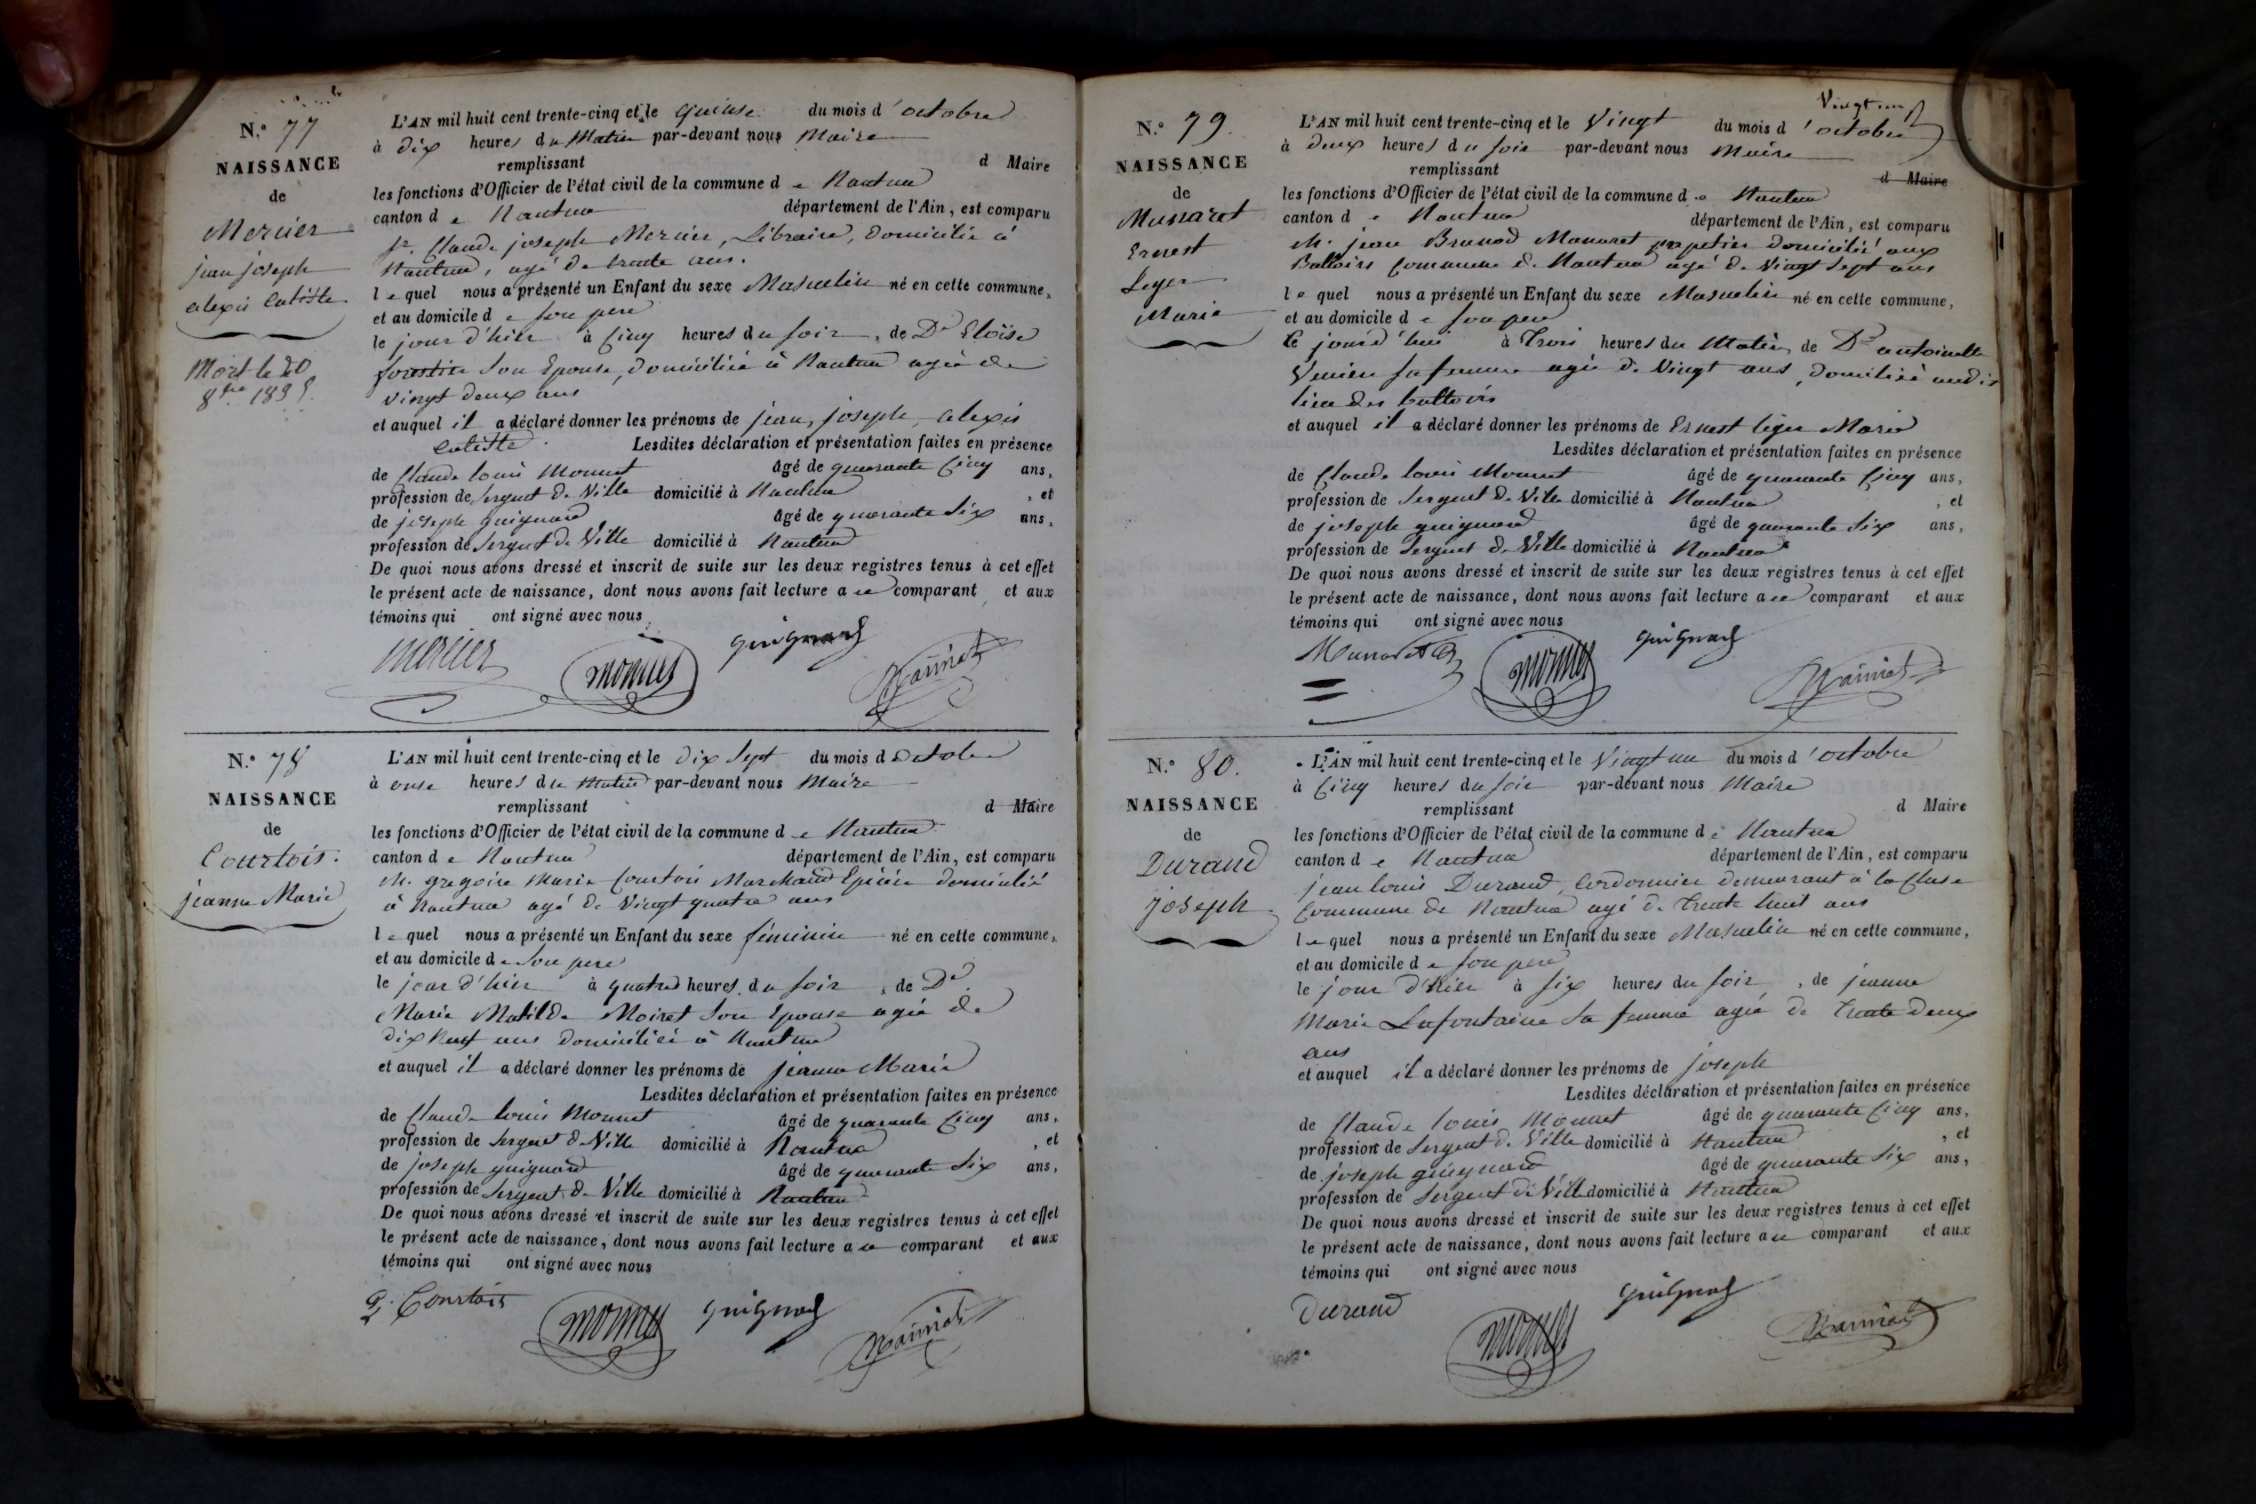 N.º 77
NAISSANCE
de
Mercier
jean joseph
alexis Calixte
Mort le 20
8bre 1835.
L'AN mil huit cent trente-cinq et le quinse du mois d'octobre
à dix heures du Matin par-devant nous Maire
remplissant d Maire
les fonctions d'Officier de l'état civil de la commune de Nantua
canton de Nantua département de l'Ain, est comparu
Sr. Claude joseph Mercier, Libraire, domicilié à
Nantua, agé de trente ans.
lequel nous a présenté un Enfant du sexe Masculin né en cette commune,
et au domicile de son pere
le jour d'hier à Cinq heures du soir, de De Eloïse
son Epouse, domiciliée à Nantua agée de
vingt deux ans
et auquel il a déclaré donner les prénoms de jean, joseph, alexis
Lesdites déclaration et présentation faites en présence
de Claude louis Monnet âgé de quarante Cinq ans,
profession de Sergent de Ville domicilié à Nantua, et
de joseph guignard âgé de quarante Six ans,
profession de Sergent de Ville domicilié à Nantua
De quoi nous avons dressé et inscrit de suite sur les deux registres tenus à cet effet
le présent acte de naissance, dont nous avons fait lecture au comparant et aux
témoins qui ont signé avec nous
Mercier monnet guignard
N.º 78
NAISSANCE
de
Courtois.
jeanne Marie
L'AN mil huit cent trente-cinq et le dix Sept du mois d octobre
à onse heures du Matin par-devant nous Maire
remplissant d Maire
les fonctions d'Officier de l'état civil de la commune de Nantua
canton de Nantua département de l'Ain, est comparu
M. gregoire Marie Courtois Marchand Epicier domicilié
à Nantua agé de Vingt quatre ans
lequel nous a présenté un Enfant du sexe féminin né en cette commune,
et au domicile de son pere
le jour d'hier à quatre heures du soir, de De
Marie Matilde Moiret Son Epouse agée de
dix Neuf ans domiciliée à Nantua
et auquel il a déclaré donner les prénoms de jeanne Marie
Lesdites déclaration et présentation faites en présence
de Claude louis Monnet âgé de quarante Cinq ans,
profession de Sergent de Ville domicilié à Nantua, et
de joseph guignard âgé de quarante Six ans,
profession de Sergent de Ville domicilié à Nantua
De quoi nous avons dressé et inscrit de suite sur les deux registres tenus à cet effet
le présent acte de naissance, dont nous avons fait lecture au comparant et aux
témoins qui ont signé avec nous
g. Courtois monnet guignard
N.º 79.
NAISSANCE
de
Munaret
Ernest
Leger
Marie
L'AN mil huit cent trente-cinq et le Vingt du mois d'octobre
à deux heures du soir par-devant nous Maire
remplissant d Maire
les fonctions d'Officier de l'état civil de la commune de Nantua
canton de Nantua département de l'Ain, est comparu
M. jean Munaret papetier domicilié aux
Battoirs Commune de Nantua agé de Vingt Sept ans
lequel nous a présenté un Enfant du sexe Masculin né en cette commune,
et au domicile de son pere
le jour d'hui à Trois heures du Matin, de De antoinette
sa femme agée de Vingt ans, domiciliée audit
lieu des battoirs
et auquel il a déclaré donner les prénoms de Ernest léger Marie
Lesdites déclaration et présentation faites en présence
de Claude louis Monnet âgé de quarante Cinq ans,
profession de Sergent de Ville domicilié à Nantua, et
de joseph guignard âgé de quarante Six ans,
profession de Sergent de Ville domicilié à Nantua
De quoi nous avons dressé et inscrit de suite sur les deux registres tenus à cet effet
le présent acte de naissance, dont nous avons fait lecture au comparant et aux
témoins qui ont signé avec nous
Munaret monnet guignard
N.º 80.
NAISSANCE
de
Durand
joseph
L'AN mil huit cent trente-cinq et le Vingt un du mois d'octobre
à Cinq heures du soir par-devant nous Maire
remplissant d Maire
les fonctions d'Officier de l'état civil de la commune de Nantua
canton de Nantua département de l'Ain, est comparu
jean louis Durand, Cordonnier demeurant à la Cluse
Commune de Nantua agé de Trente huit ans
lequel nous a présenté un Enfant du sexe Masculin né en cette commune,
et au domicile de son pere
le jour d'hier à Six heures du soir, de jeanne
Marie Lafontaine Sa femme agée de Trente deux
ans
et auquel il a déclaré donner les prénoms de joseph
Lesdites déclaration et présentation faites en présence
de Claude louis Monnet âgé de quarante Cinq ans,
profession de Sergent de Ville domicilié à Nantua, et
de joseph guignard âgé de quarante Six ans,
profession de Sergent de Ville domicilié à Nantua
De quoi nous avons dressé et inscrit de suite sur les deux registres tenus à cet effet
le présent acte de naissance, dont nous avons fait lecture au comparant et aux
témoins qui ont signé avec nous
Durand monnet guignard